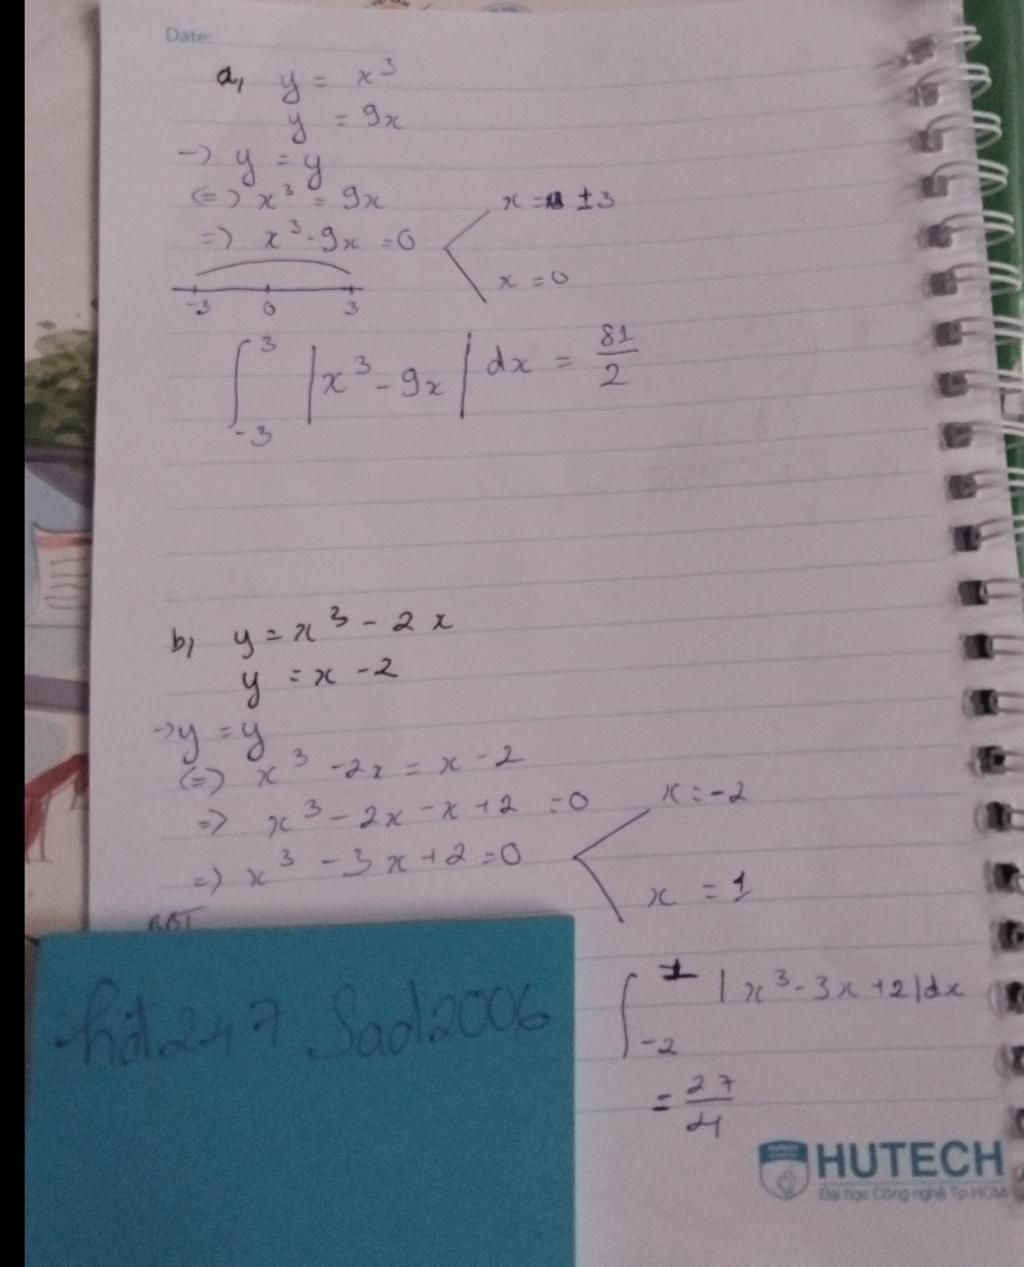 Date:
a, y = x³
y = 9x
-> y = y
(=) x³ = 9x
=) x³-9x = 0
x = ±3
x = 0
-3 0 3
∫₋₃³ |x³-9x| dx = 81/2
b, y = x³ - 2x
y = x - 2
-> y = y
(=) x³ - 2x = x - 2
=> x³ - 2x - x + 2 = 0
=) x³ - 3x + 2 = 0
x = -2
x = 1
BBT
∫₋₂¹ |x³-3x+2|dx
= 27/4
Sad2006
HUTECH
Đại học Công nghệ Tp.HCM